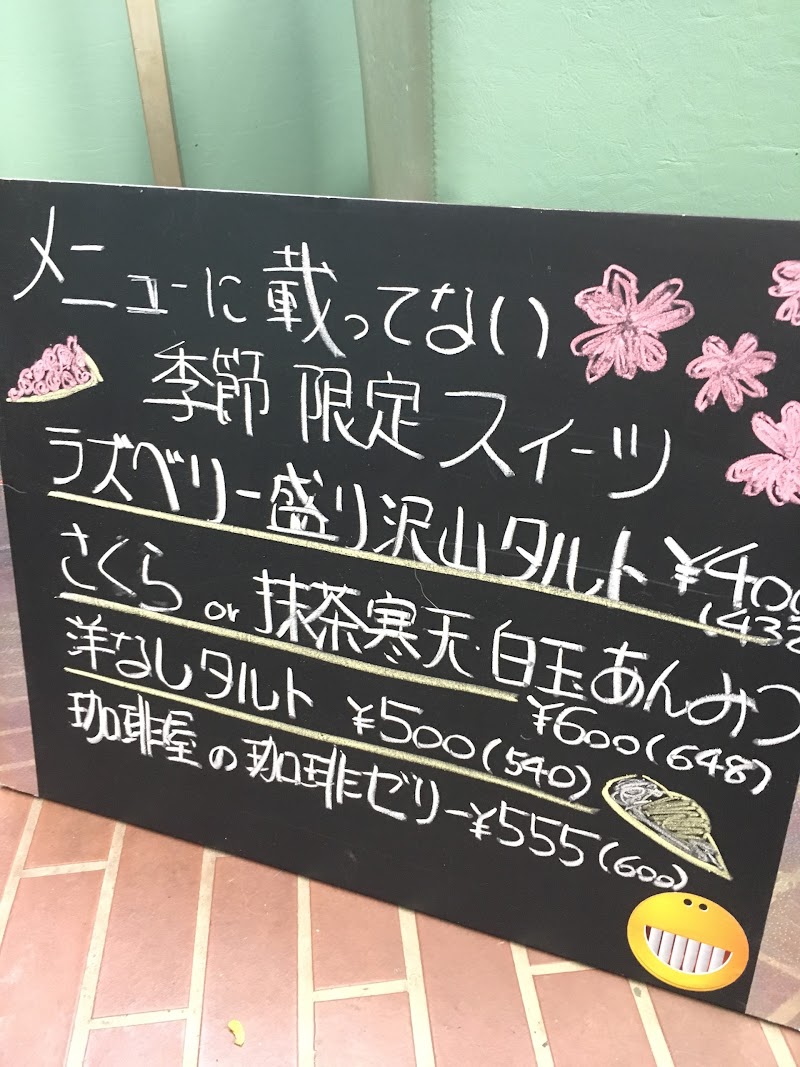 メニューに載ってない
季節 限定 スイーツ
ラズベリー盛り沢山タルト ¥400
(432
さくら or 抹茶寒天・白玉あんみつ
¥600(648)
洋なしタルト ¥500(540)
珈琲屋の珈琲ゼリー¥555(600)